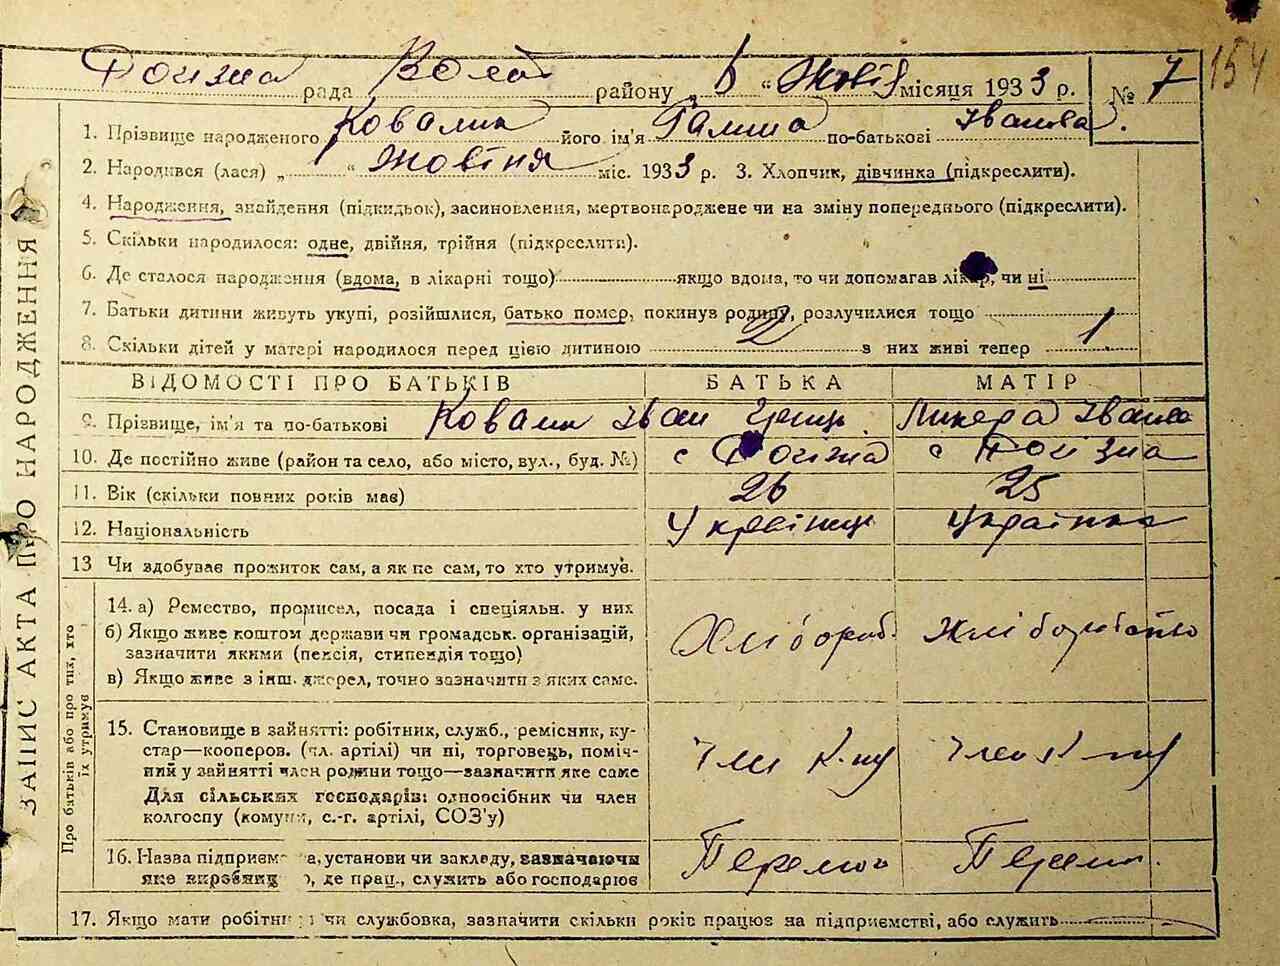 154
рада Воло районy „6“ Жовт місяця 1933 р. № 7
1. Прізвище народженого Ковалик його ім'я Галина по-батькові Іванівна.
2. Народився (лася) „ “ Жовтня міс. 1933 р. 3. Хлопчик, дівчинка (підкреслити).
4. Народження, знайдення (підкидьок), засиновлення, мертвонароджене чи на зміну попереднього (підкреслити).
5. Скільки народилося: одне, двійня, трійня (підкреслити).
6. Де сталося народження (вдома, в лікарні тощо) якщо вдома, то чи допомагав лікар, чи ні
7. Батьки дитини живуть укупі, розійшлися, батько помер, покинув родину, розлучилися тощо
8. Скільки дітей у матері народилося перед цією дитиною 2 з них живі тепер 1
ЗАПИС АКТА ПРО НАРОДЖЕННЯ
ВІДОМОСТІ ПРО БАТЬКІВ БАТЬКА МАТІР
9. Прізвище, ім'я та по-батькові Ковалик Іван Іванівна
10. Де постійно живе (район та село, або місто, вул., буд. №) с с
11. Вік (скільки повних років має) 26 25
12. Національність Українець Українка
13 Чи здобуває прожиток сам, а як не сам, то хто утримує.
Про батьків або про тих, хто їх утримує
14. а) Ремество, промисел, посада і спеціяльн. у них
б) Якщо живе коштом держави чи громадськ. організацій, Хлібороб. Хлібороб
зазначити якими (пенсія, стипендія тощо)
в) Якщо живе з інш. джерел, точно зазначити з яких саме.
15. Становище в зайнятті: робітник, служб., ремісник, ку-
стар—кооперов. (чл. артілі) чи ні, торговець, поміч- Член Член
ний у зайнятті член родини тощо—зазначити яке саме
Для сільських господарів: одноосібник чи член
колгоспу (комуни, с.-г. артілі, СОЗ'у)
16. Назва підприємства, установи чи закладу, зазначаючи Перемог Перемо.
яке виробниц о, де прац., служить або господарює
17. Якщо мати робітниця чи службовка, зазначити скільки років працює на підприємстві, або служить